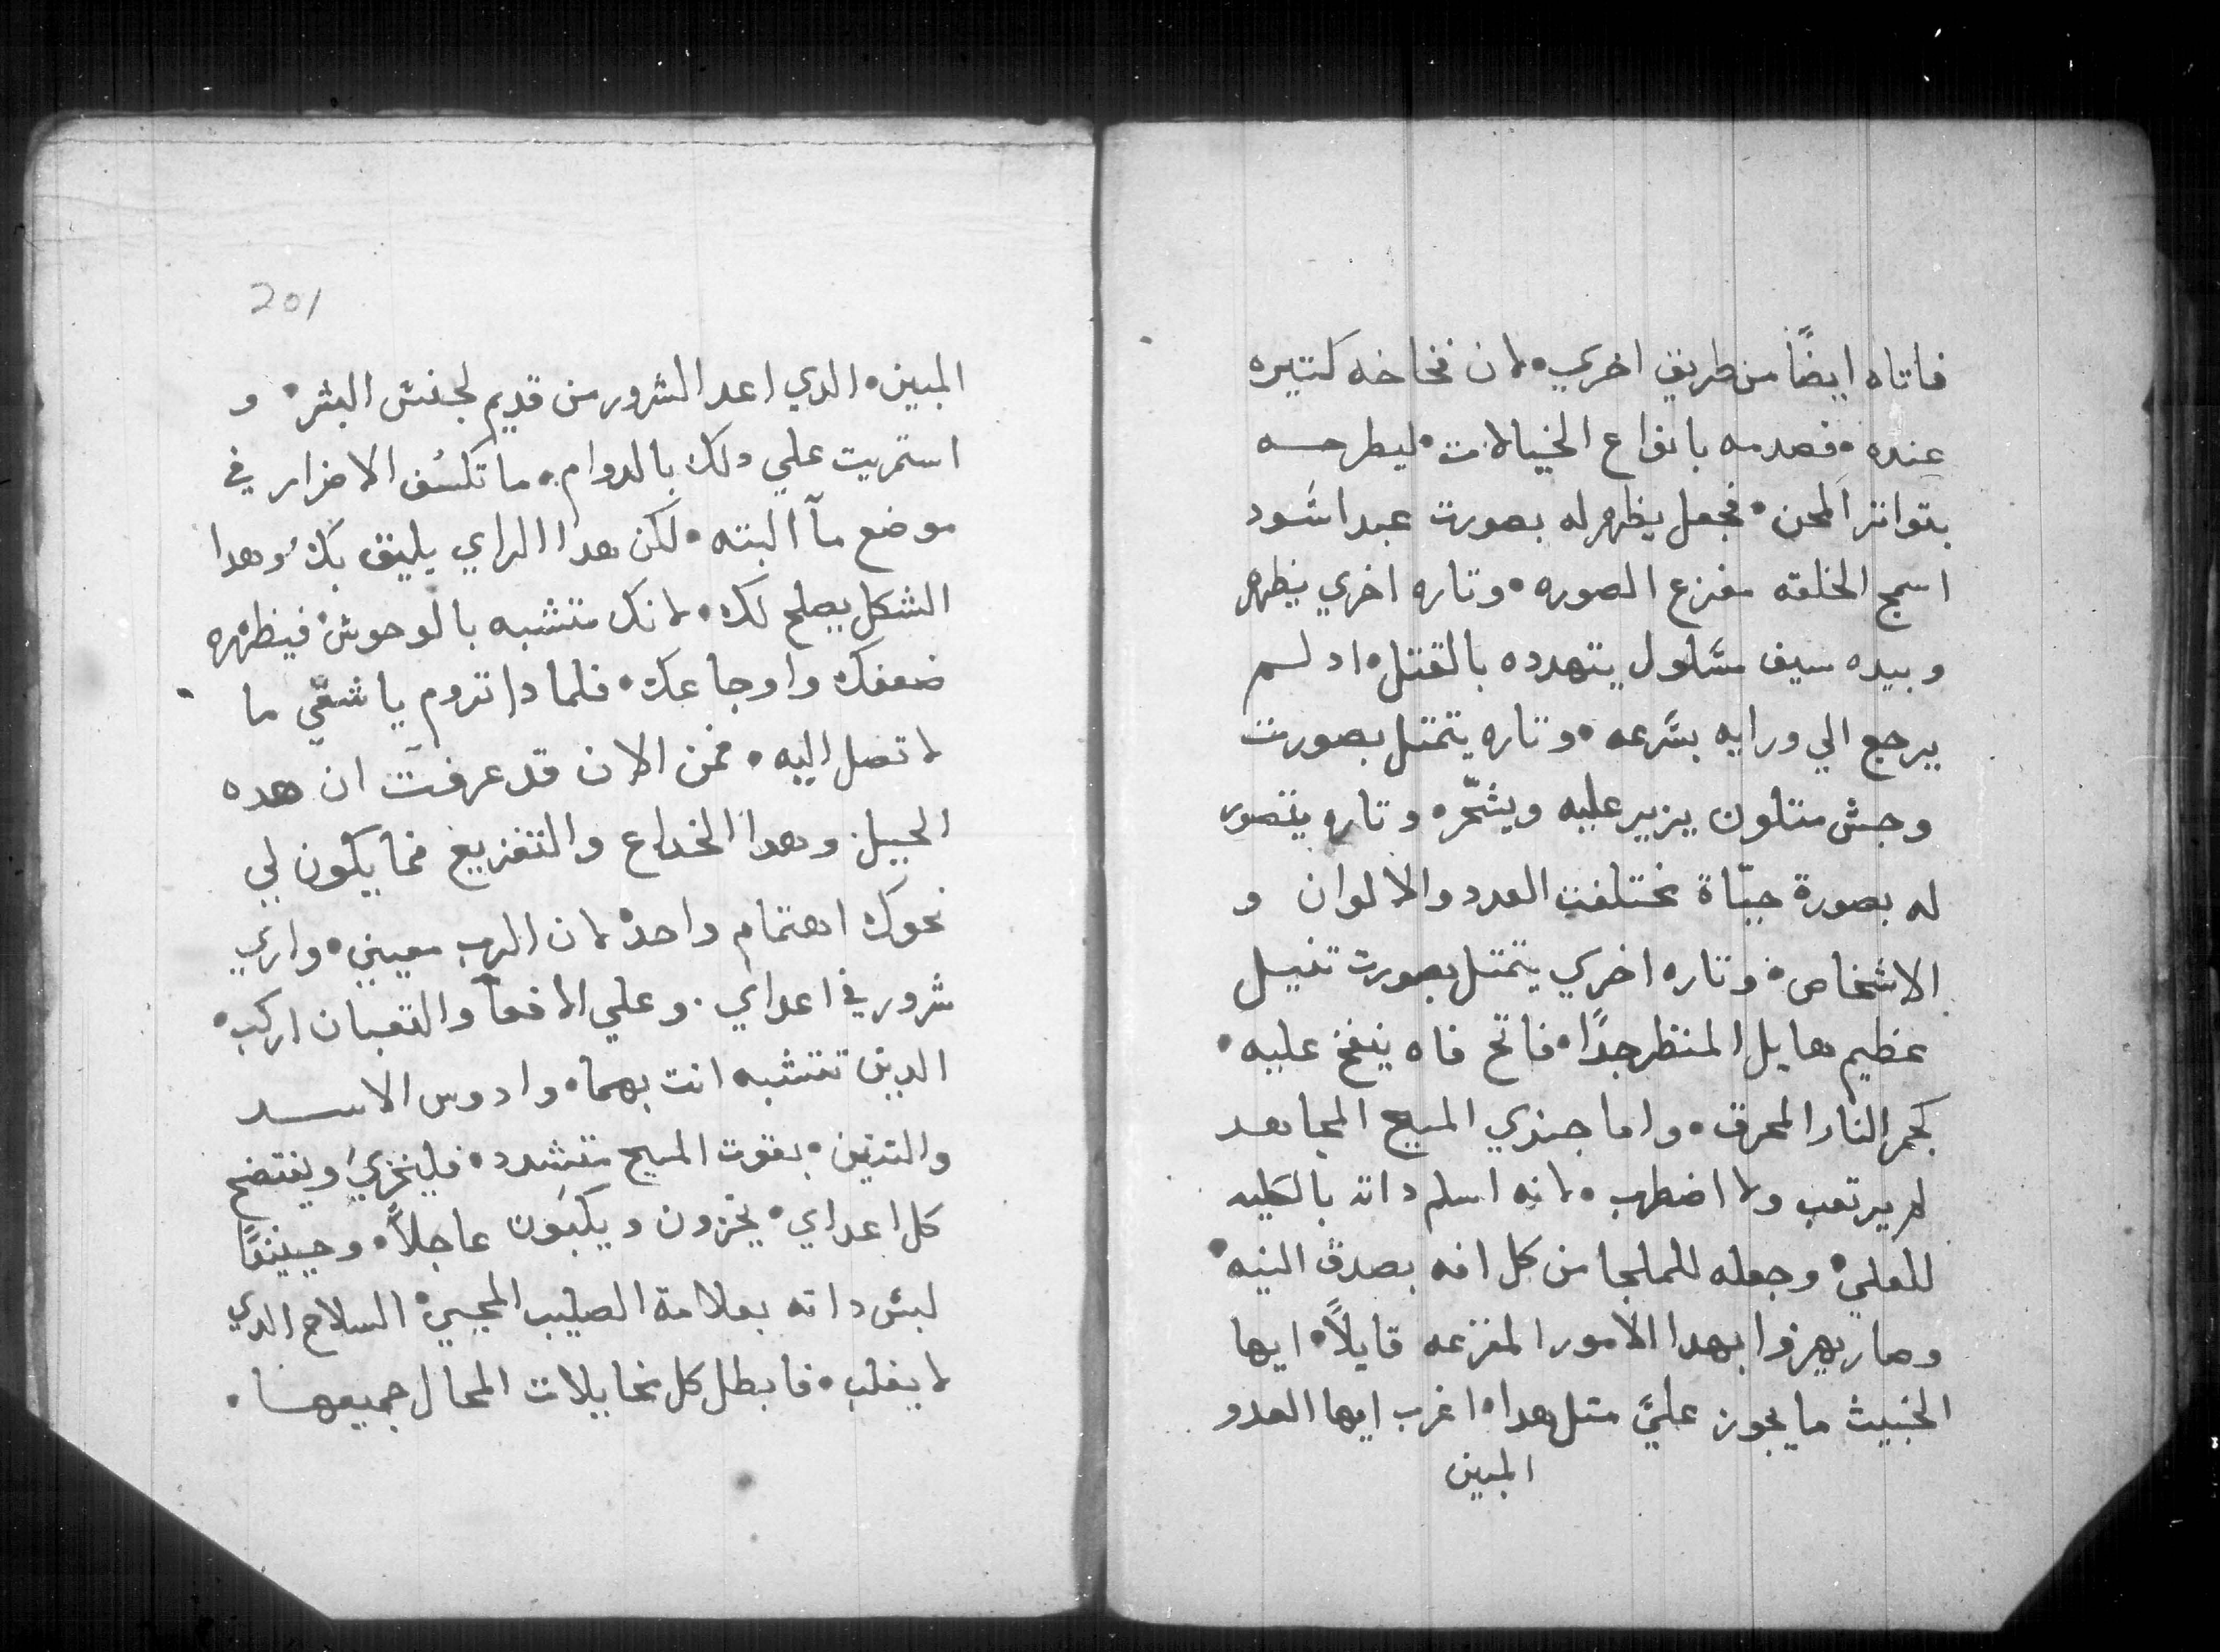 فاتاه ايضًا من طريق اخري• لان فخاخه كتيره
عنده• فصدمه بانواع الخيالات• ليطرحه
بتواتر المحن• فجعل يظهر له بصورت عبد اسود
اسمج الخلقه مفزع الصوره• وتاره اخري يظهر
وبيده سيف مسلول يتهدده بالقتل• اد لم
يرجع الي ورايه بسرعه• وتاره يتمتل بصورت
وحش متلون يزير عليه ويشخّره وتاره يتصور
له بصورة حيّاة مختلفت العدد والالوان و
الاشخاص• وتاره اخري يتمتل بصورت تنين
عظيم هايل المنظر جدًا• فاتح فاه ينفخ عليه•
كجمر النار المحرق• واما جندي المسيح المجاهد
لم يرتعب ولا اضطرب• لانه اسلم داته بالكليه
للعلي• وجعله للملجا من كل افه بصدق النيه•
وصار يهزوا بهدا الامور المفزعه قايلاً• ايها
الخبيث ما يجوز عليَّ متل هدا• اغرب ايها العدو
المبين
201
المبين• الدي اعد الشرور من قديم لجنس البشر• و
استمريت علي دلك بالدوام• ما تكسف الاضرار في
موضع مآ البته• لكن هدا الراي يليق بك وهدا
الشكل يصلح لك• لانك متشبه بالوحوش• فيظهره
ضعفك واوجاعك• فلمادا تروم يا شقي ما
لا تصل اليه• فمن الان قد عرفت ان هده
الحيل وهدا الخداع والتفزيع فما يكون لي
نحوك اهتمام واحد• لان الرب معيني• واري
شرور في اعداي• وعلي الافعآ والتعبان اركب•
الدين تتشبه انت بهما• وادوس الاسد
والتنين• بقوت المسيح متشدد• فليخزي ويفتضح
كل اعداي• يخزون ويكبون عاجلاً• وحينيدًا
لبس داته بعلامة الصليب المحيي• السلاح الدي
لا يغلب• فابطل كل تخايلات المحال جميعها•